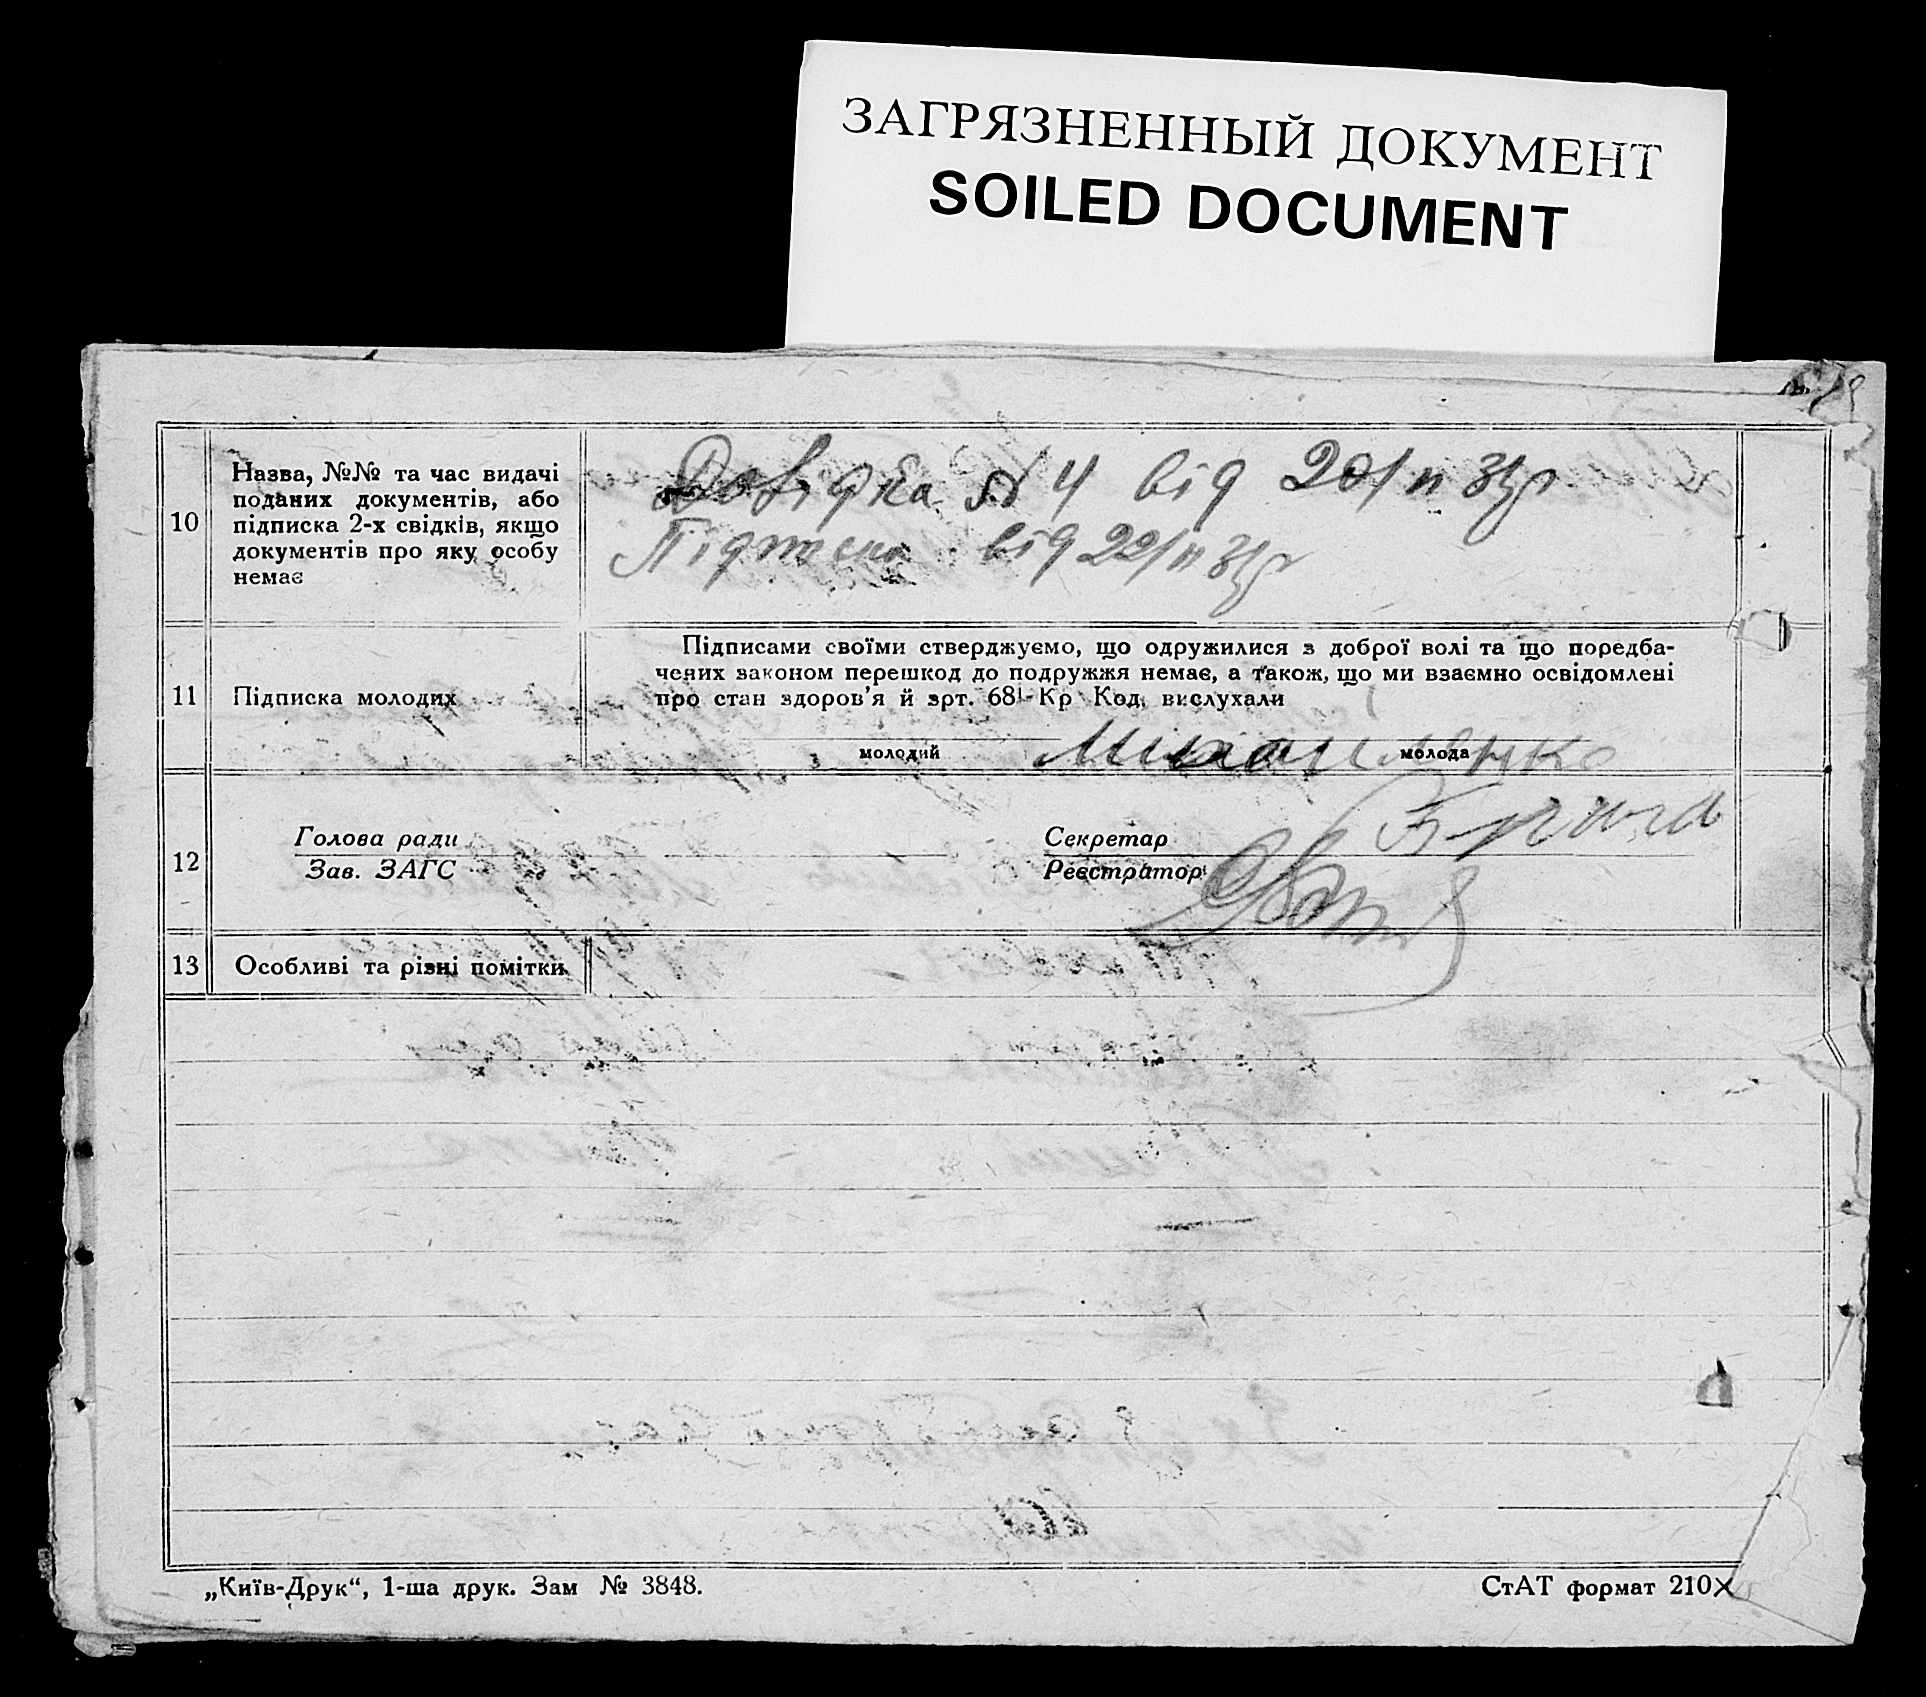 ЗАГРЯЗНЕННЫЙ ДОКУМЕНТ
SOILED DOCUMENT
10
Назва, №№ та час видачі
поданих документів, або
підписка 2-х свідків, якщо
документів про яку особу
немає
Довідка № 4 від 20/II 31 р
Підписка від 22/II 31 р
11
Підписка молодих
Підписами своїми стверджуємо, що одружилися з доброї волі та що поредба-
чених законом перешкод до подружжя немає, а також, що ми взаємно освідомлені
про стан здоров'я й арт. 68¹-Кр Код. вислухали
молодий
молода
Михайленко
12
Голова ради
Зав. ЗАГС
Секретар
Реєстратор
13
Особливі та різні помітки
„Київ-Друк“, 1-ша друк. Зам № 3848.
СтАТ формат 210×